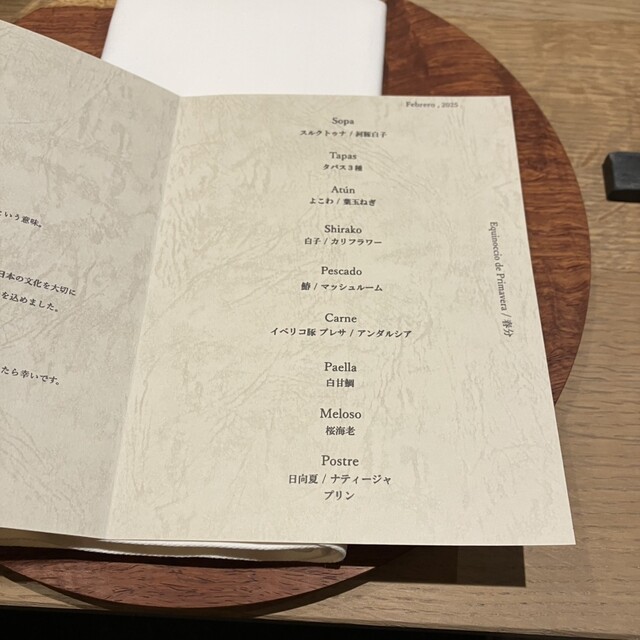 という意味。
日本の文化を大切に
を込めました。
たら幸いです。
Febrero , 2025
Sopa
スルクトゥナ / 河豚白子
Tapas
タパス3種
Atún
よこわ / 葉玉ねぎ
Shirako
白子 / カリフラワー
Pescado
鰆 / マッシュルーム
Carne
イベリコ豚 プレサ / アンダルシア
Paella
白甘鯛
Meloso
桜海老
Postre
日向夏 / ナティージャ
プリン
Equinoccio de Primavera / 春分